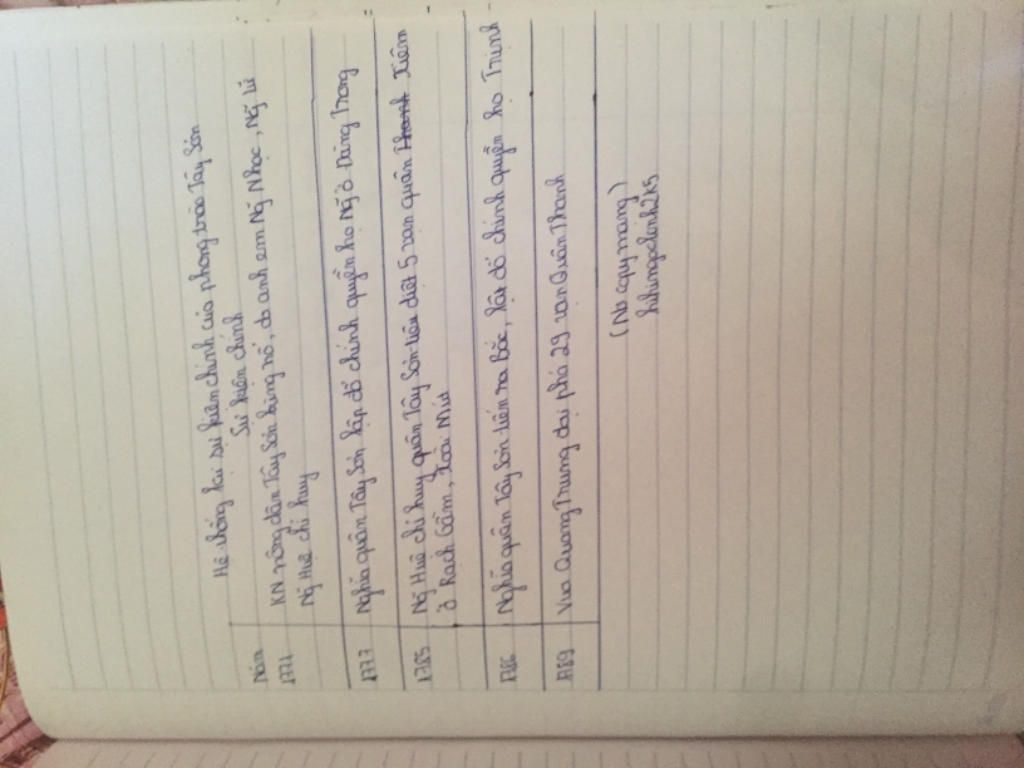 Hệ thống lại sự kiện chính của phong trào Tây Sơn
Năm Sự kiện chính
1771 KN nông dân Tây Sơn bùng nổ, do anh em Ng~ Nhạc, Ng~ Lữ
Ng~ Huệ chỉ huy
1777 Nghĩa quân Tây Sơn lập đổ chính quyền họ Ng~ ở Đàng Trong
1785 Ng~ Huệ chỉ huy quân Tây Sơn tiêu diệt 5 vạn quân Thanh Xiêm
ở Rạch Gầm, Xoài Mút
1786 Nghĩa quân Tây Sơn tiến ra Bắc, lật đổ chính quyền họ Trịnh
1789 Vua Quang Trung đại phá 29 vạn Quân Thanh
(No copy mạng)